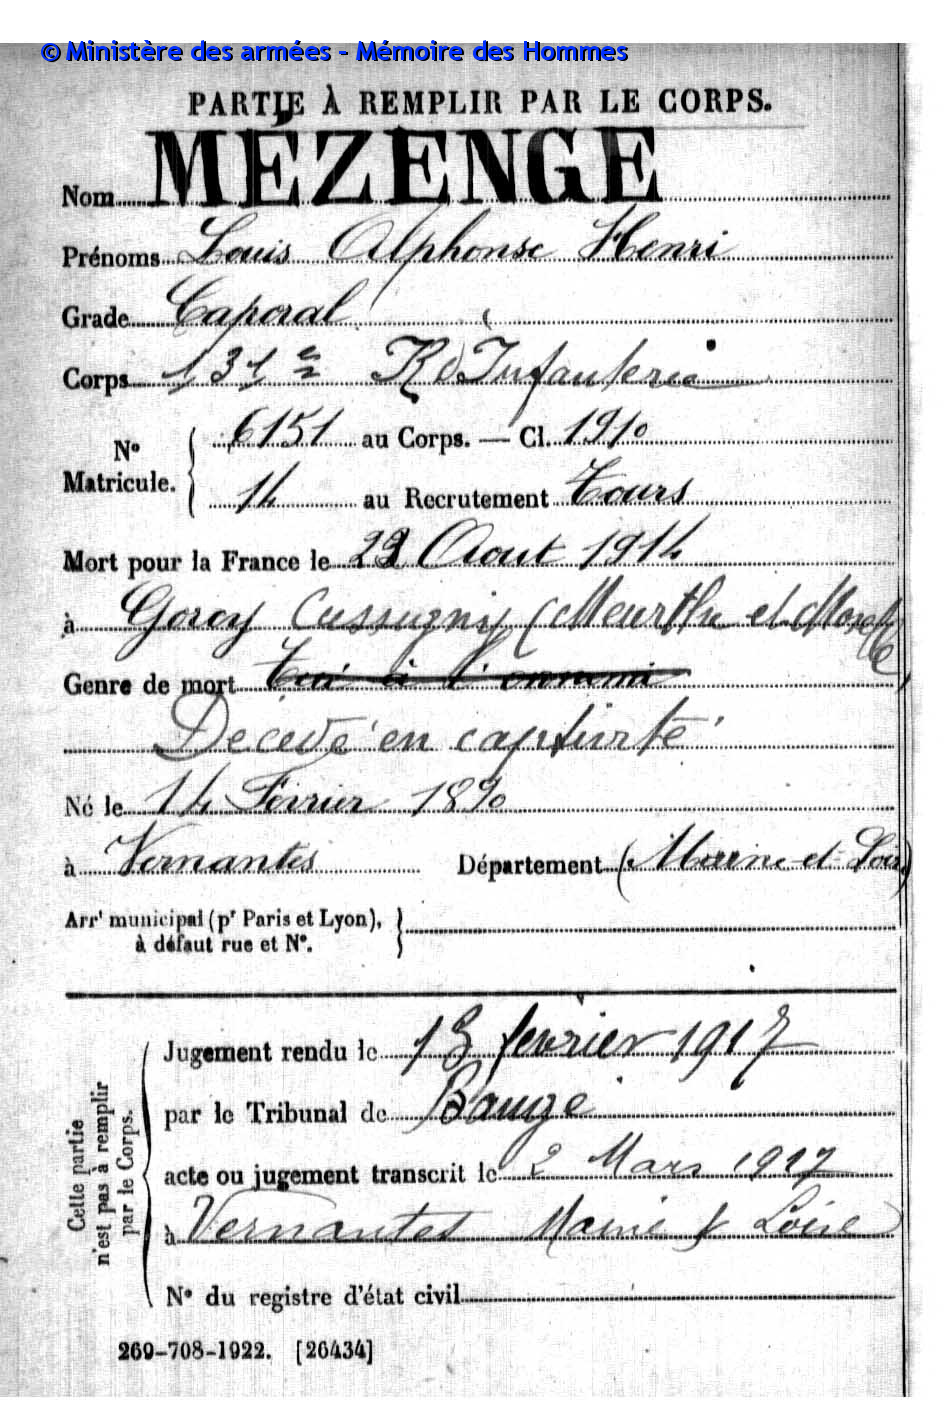 © Ministère des armées - Mémoire des Hommes
PARTIE À REMPLIR PAR LE CORPS.
Nom MÉZENGE
Prénoms Louis Alphonse Henri
Grade Caporal
Corps 131e R d'Infanterie
N° Matricule. 6151 au Corps. — Cl. 1910
14 au Recrutement Tours
Mort pour la France le 22 Aout 1914
à Gorcy Cussigny (Meurthe et Moselle)
Genre de mort Tué à l'ennemi
Décédé en captivité
Né le 14 Février 1890
à Vernantes Département (Maine-et-Loire)
Arrt municipal (pr Paris et Lyon),
à défaut rue et N°.
Cette partie n'est pas à remplir par le Corps.
Jugement rendu le 15 février 1917
par le Tribunal de Baugé
acte ou jugement transcrit le 2 Mars 1917
à Vernantes Maine & Loire
N° du registre d'état civil
269-708-1922. [26434]